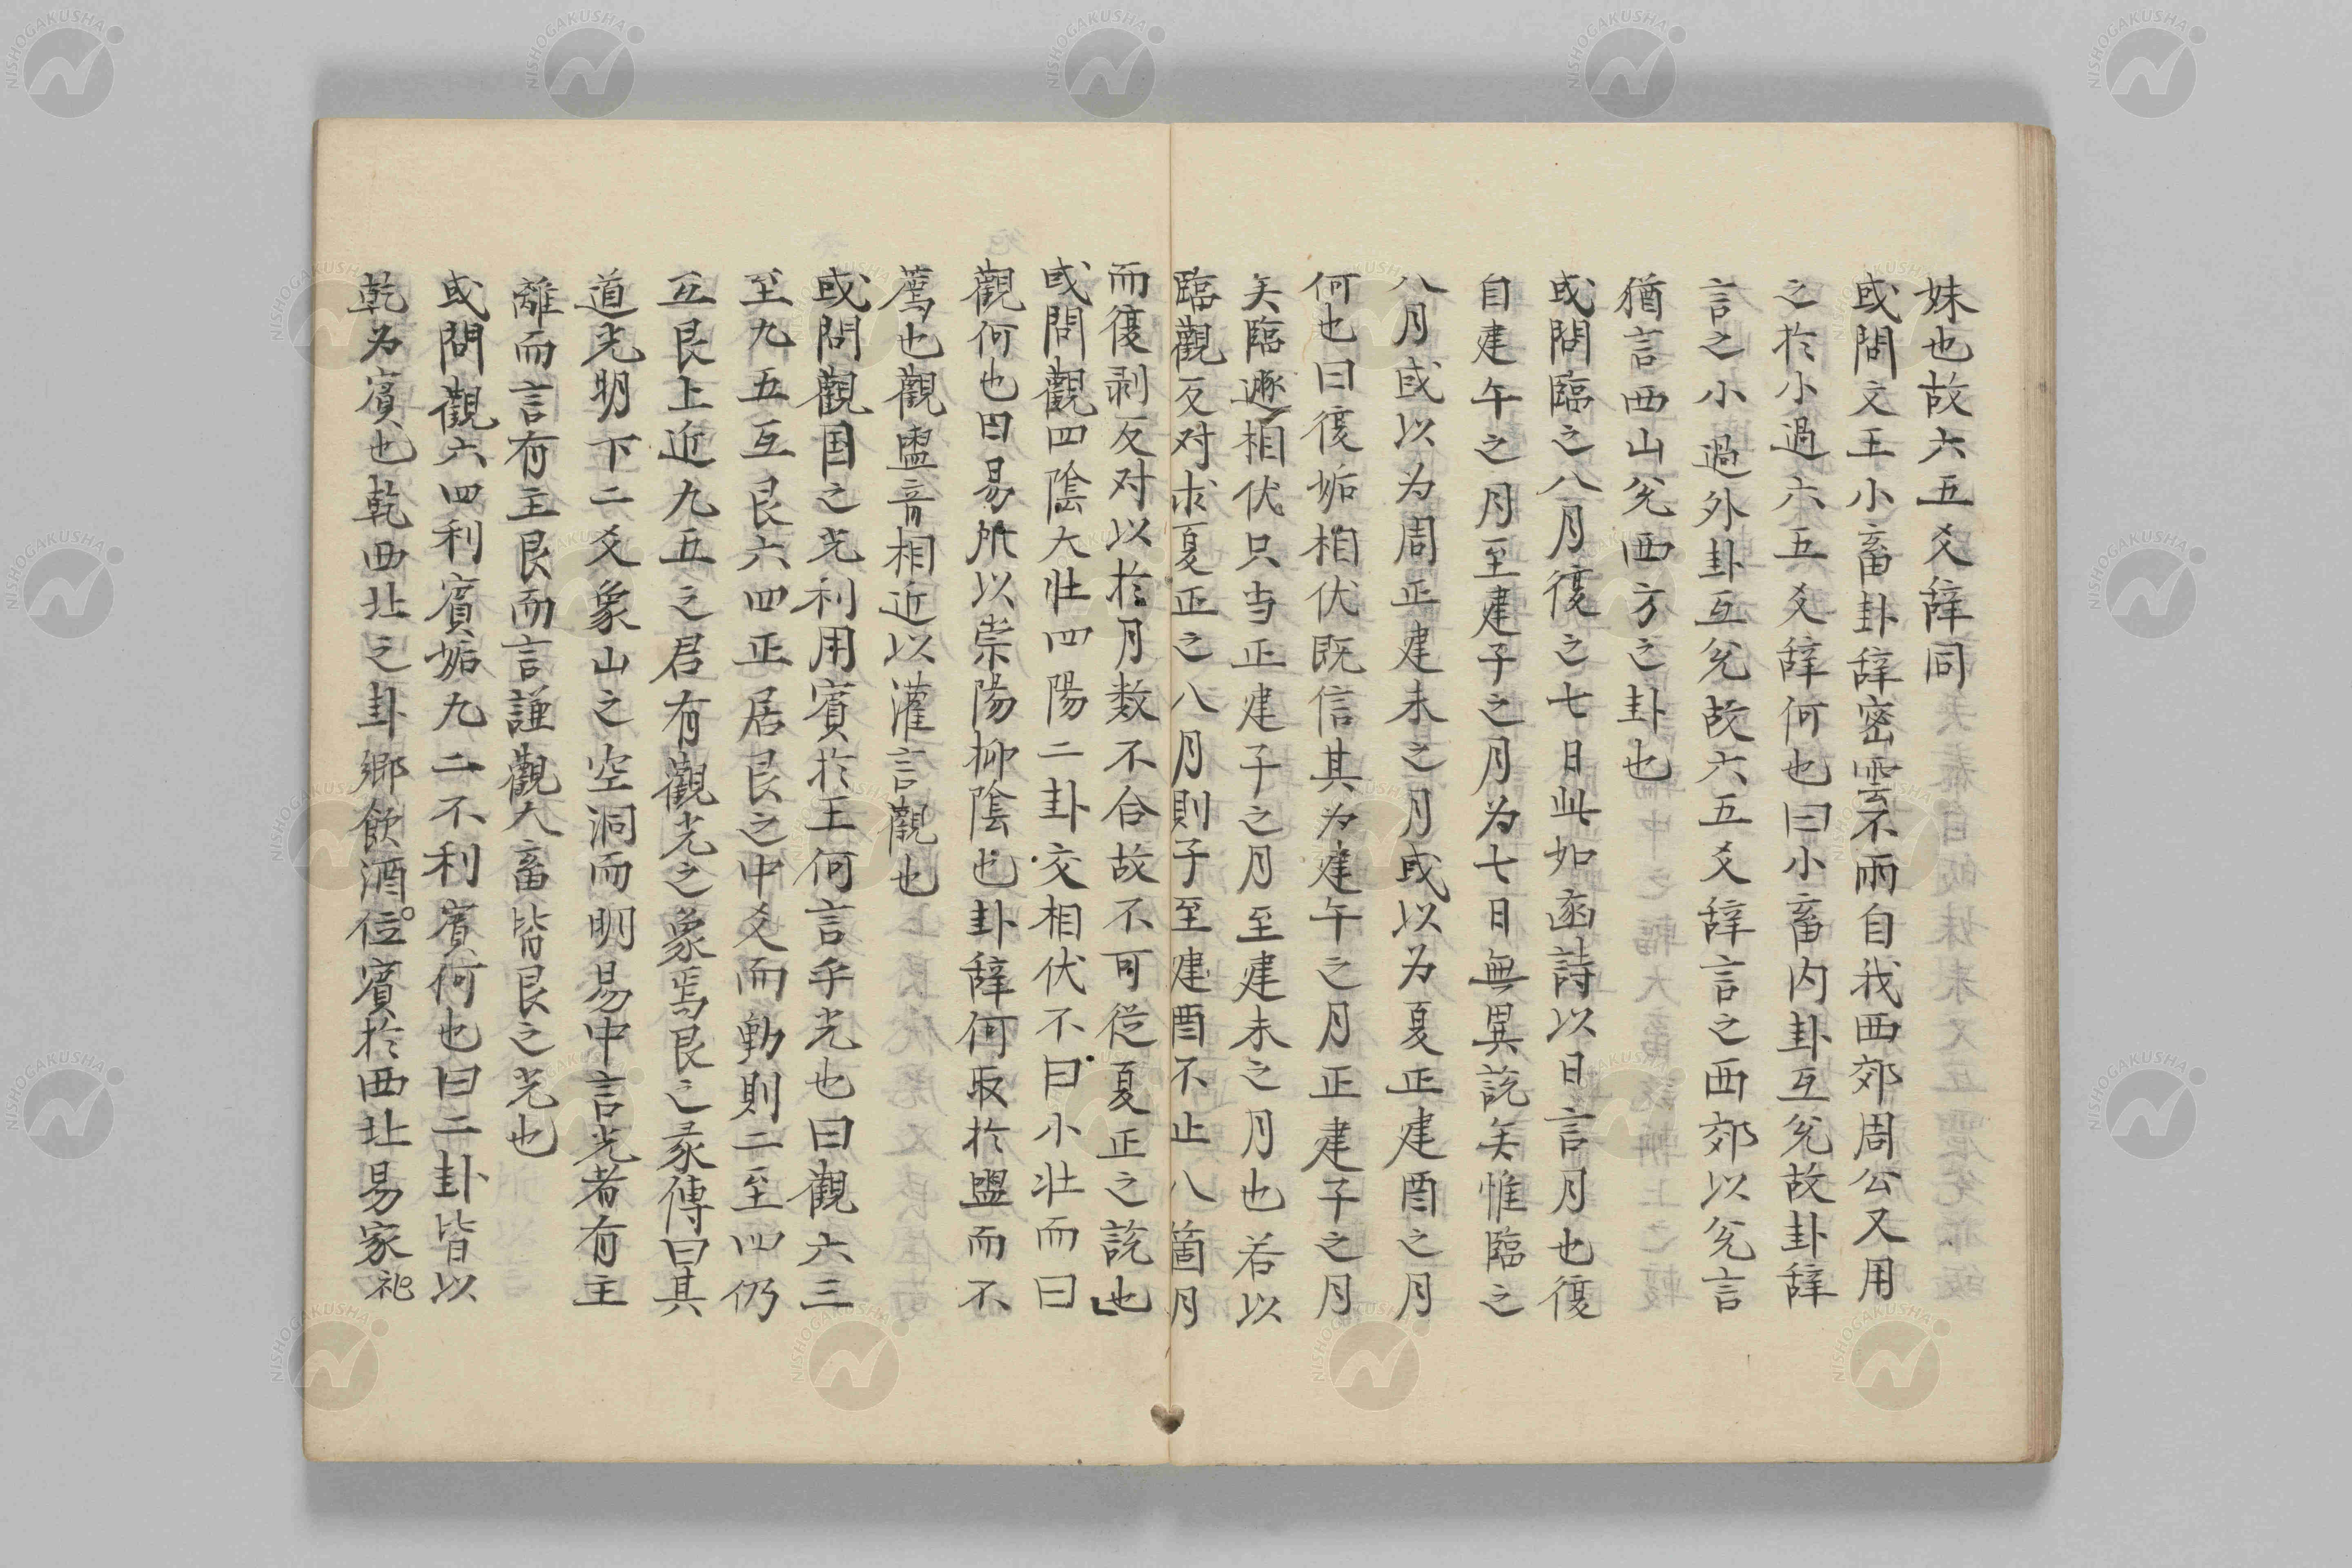 妹也故六五爻辞同
或問文王小畜卦辞密雲不雨自我西郊周公又用
之於小過六五爻辞何也曰小畜内卦互兊故卦辞
言之小過外卦互兊故六五爻辞言之西郊以兊言
猶言西山兊西方之卦也
或問臨之八月復之七日此如豳詩以日言月也復
自建午之月至建子之月为七日無異說矣惟臨之
八月或以为周正建未之月或以为夏正建酉之月
何也曰復姤相伏既信其为建午之月正建子之月
矣臨遯相伏只当正建子之月至建未之月也若以
臨觀反对求夏正之八月則子至建酉不止八箇月
而復剥反对以於月数不合故不可從夏正之說也
或問觀四陰大壮四陽二卦交相伏不曰小壮而曰
觀何也曰易所以崇陽抑陰也卦辞何取於盥而不
薦也觀盥音相近以灌言觀也
或問觀国之光利用賓於王何言乎光也曰觀六三
至九五互艮六四正居艮之中爻而動則二至四仍
互艮上近九五之君有觀光之象焉艮之彖傳曰其
道光明下二爻象山之空洞而明易中言光者有主
離而言有主艮而言謙觀大畜皆艮之光也
或問觀六四利賓姤九二不利賓何也曰二卦皆以
乾为賓也乾西北之卦鄉飲酒位賓於西北易家祀
NISHOGAKUSHA